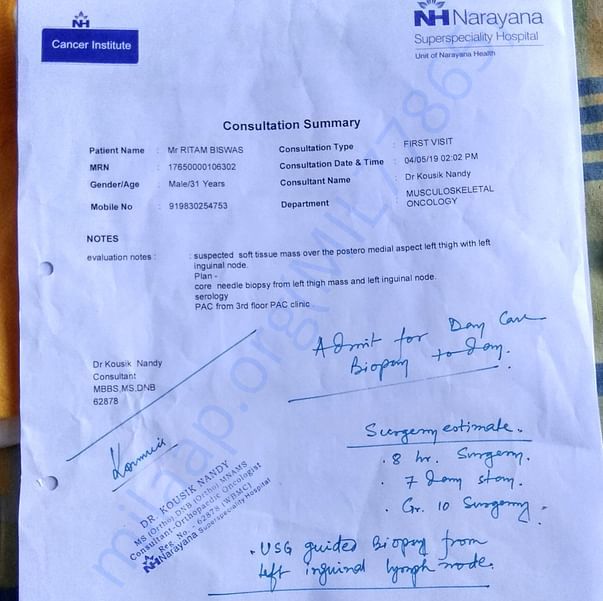 NH
Cancer Institute
NH Narayana
Superspeciality Hospital
Unit of Narayana Health
Consultation Summary
Patient Name : Mr RITAM BISWAS
Consultation Type : FIRST VISIT
MRN : 17650000106302
Consultation Date & Time : 04/05/19 02:02 PM
Gender/Age : Male/31 Years
Consultant Name : Dr Kousik Nandy
Mobile No : 919830254753
Department : MUSCULOSKELETAL
ONCOLOGY
NOTES
evaluation notes : : suspected soft tissue mass over the postero medial aspect left thigh with left
inguinal node.
Plan -
core needle biopsy from left thigh mass and left inguinal node.
serology
PAC from 3rd floor PAC clinic
Admit for Day Care
Biopsy to day.
Dr Kousik Nandy
Consultant
MBBS,MS,DNB
62878
Surgery estimate.
. 8 hr. Surgery.
. 7 day stay.
. Gr. 10 Surgery.
DR. KOUSIK NANDY
MS (Ortho) DNB (Ortho) MNAMS
Consultant-Orthopaedic Oncologist
Reg. No. - 62878 (WBMC)
NH Narayana Superspeciality Hospital
. USG guided Biopsy from
left inguinal lymph node.